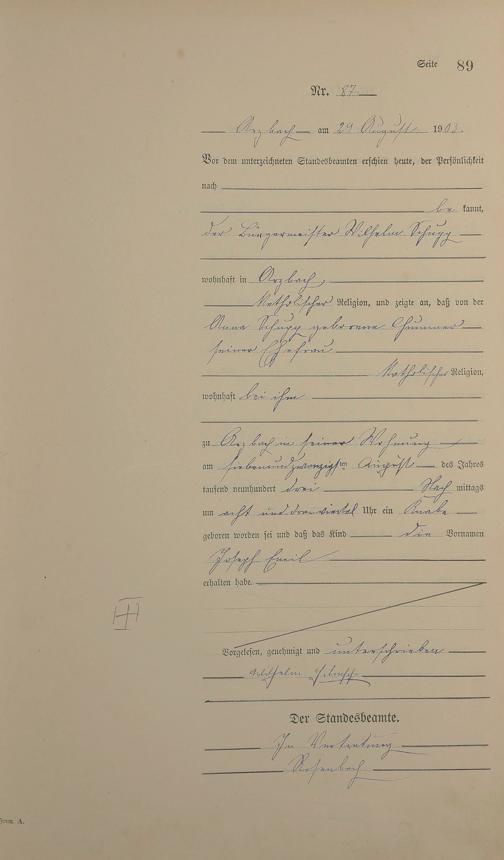 Seite 89
Nr. 87
Arzbach am 29 August 1903.
Vor dem unterzeichneten Standesbeamten erschien heute, der Persönlichkeit
nach
be kannt,
der Bürgermeister Wilhelm Schupp
wohnhaft in Arzbach,
katholischer Religion, und zeigte an, daß von der
Anna Schupp geborene
seiner Ehefrau
katholischer Religion,
wohnhaft bei ihm
zu Arzbach in seiner Wohnung
am siebenundzwanzigsten August des Jahres
tausend neunhundert drei Nach mittags
um acht und dreiviertel Uhr ein Knabe
geboren worden sei und daß das Kind die Vornamen
Joseph Emil
erhalten habe.
Vorgelesen, genehmigt und unterschrieben
Wilhelm Schupp
Der Standesbeamte.
In Vertretung
Rosenbach
Form. A.